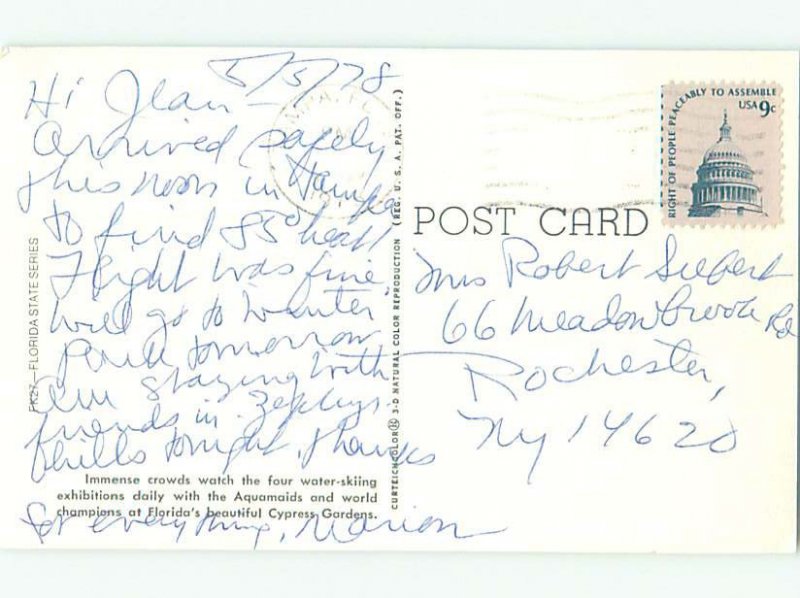 5/5/78
Hi Jean -
arrived safely
this noon in Tampa
to find 85° heat
Flight was fine,
will go to Winter
Park tomorrow
am staying with
friends in Zephyr-
hills tonight, thanks
for everything, Marion
Immense crowds watch the four water-skiing
exhibitions daily with the Aquamaids and world
champions at Florida's beautiful Cypress Gardens.
FK27—FLORIDA STATE SERIES
CURTEICHCOLOR® 3-D NATURAL COLOR REPRODUCTION (REG. U. S. A. PAT. OFF.)
POST CARD
RIGHT OF PEOPLE PEACEABLY TO ASSEMBLE
USA 9c
Mrs Robert Siebert
66 Meadowbrook Rd
Rochester,
NY 14620